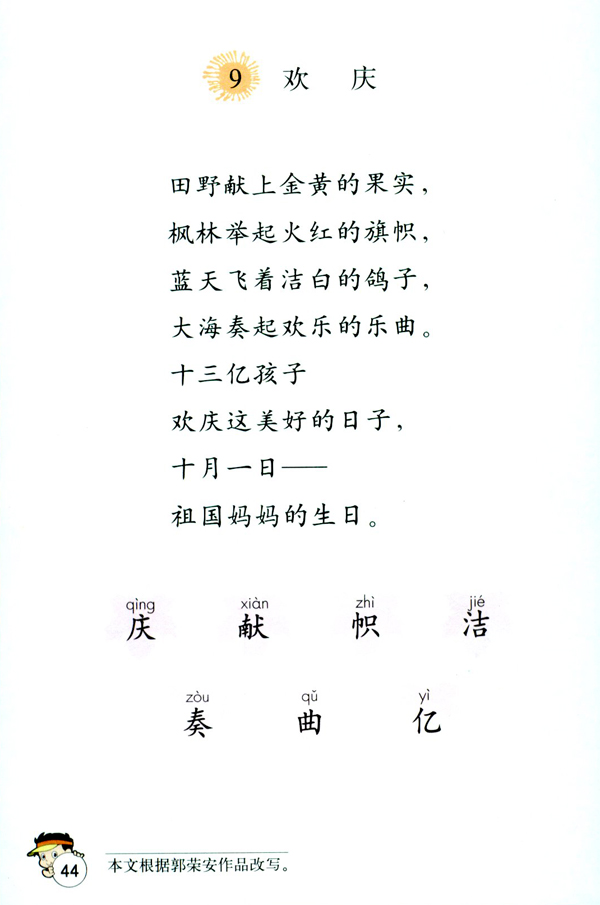 9 欢 庆
田野献上金黄的果实，
枫林举起火红的旗帜，
蓝天飞着洁白的鸽子，
大海奏起欢乐的乐曲。
十三亿孩子
欢庆这美好的日子，
十月一日——
祖国妈妈的生日。
qìng xiàn zhì jié
庆 献 帜 洁
zòu qǔ yì
奏 曲 亿
44 本文根据郭荣安作品改写。